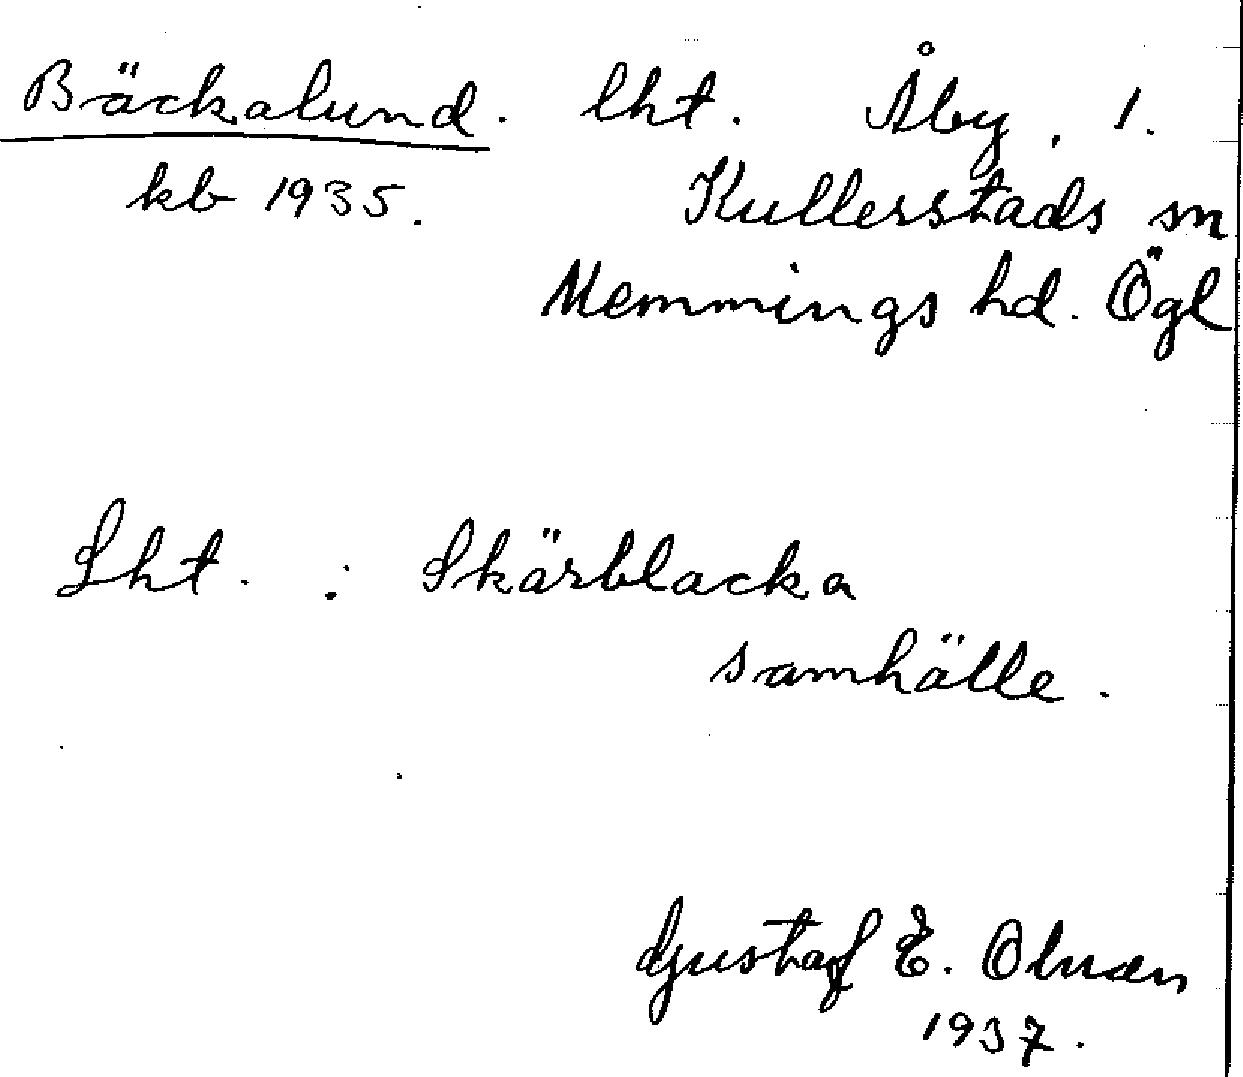 Bäckalund. lht. Åby, 1.
kb 1935. Kullerstads sn
Memmings hd. Ögl
Lht. : Skärblacka
samhälle.
Gustaf E.
1937.